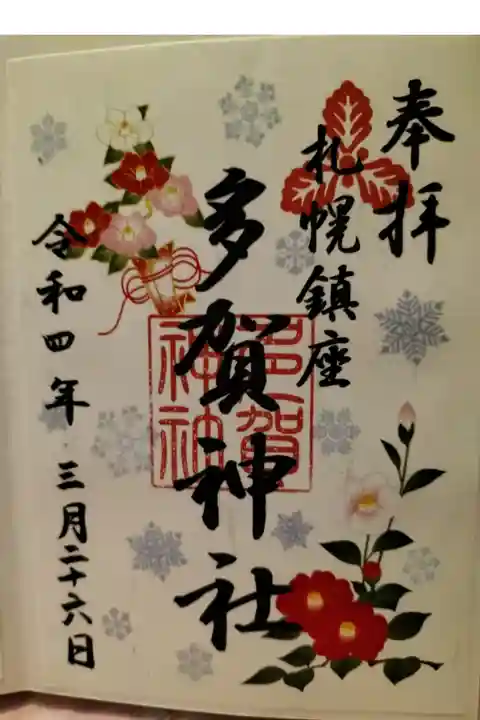 奉拝
札幌鎮座
多賀神社
多賀
神社
令和四年 三月二十六日